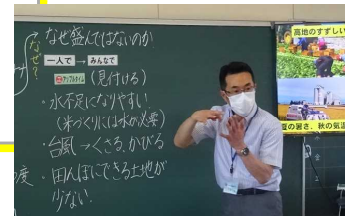 なぜ?
なぜ盛んではないのか
一人で → みんなで
(見付ける)
・水不足になりやすい
(米づくりには水が必要)
・台風→くさる、かびる
度
・田んぼにできる土地が
少ない
高地のすずしい
夏の暑さ、秋の気温